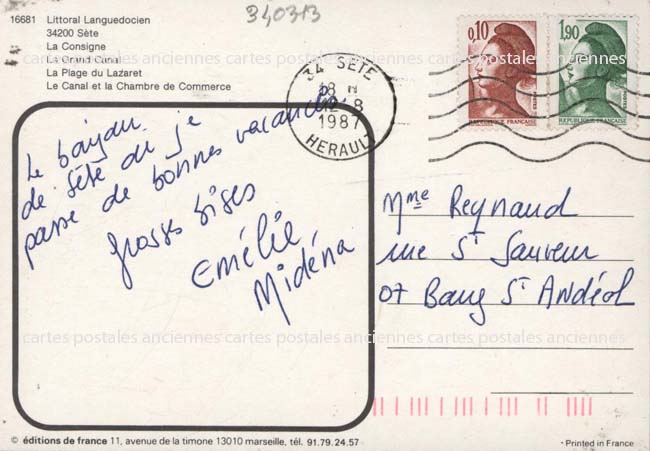 340313
16681 Littoral Languedocien
34200 Sète
La Consigne
Le Grand Canal
La Plage du Lazaret
Le Canal et la Chambre de Commerce
34 SETE
18 H
12-8
1987
HERAULT
0,10
REPUBLIQUE FRANÇAISE
1,90
REPUBLIQUE FRANÇAISE
Le bonjour
de Sète où je
passe de bonnes vacances.
grosses bises
Emélie
Midéna
Mme Reynaud
rue St Sauveur
07 Bourg St Andéol
cartes postales anciennes cartes postales anciennes cartes postales anciennes
© éditions de france 11, avenue de la timone 13010 marseille, tél. 91.79.24.57
Printed in France